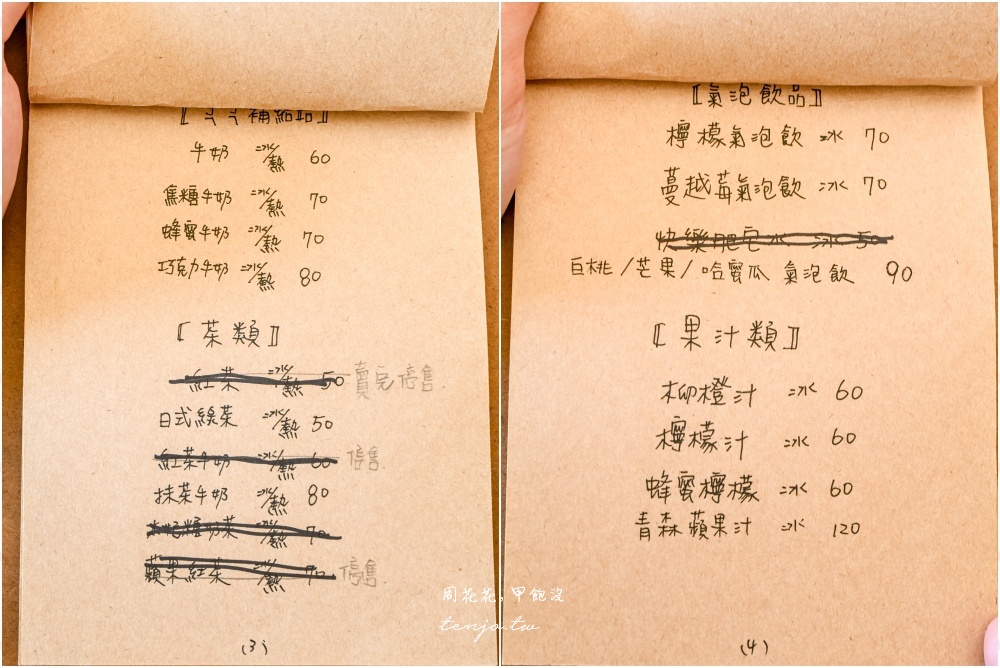 〖ㄋㄟㄋㄟ補給站〗
牛奶 冰/熱 60
焦糖牛奶 冰/熱 70
蜂蜜牛奶 冰/熱 70
巧克力牛奶 冰/熱 80
〖茶類〗
紅茶 冰/熱 50 賣完停售
日式綠茶 冰/熱 50
紅茶牛奶 冰/熱 60 停售
抹茶牛奶 冰/熱 80
糖奶茶 冰/熱 70
蘋果紅茶 冰/熱 70 停售
(3)
〖氣泡飲品〗
檸檬氣泡飲 冰 70
蔓越莓氣泡飲 冰 70
快樂肥宅水 冰 50
白桃/芒果/哈蜜瓜 氣泡飲 90
〖果汁類〗
柳橙汁 冰 60
檸檬汁 冰 60
蜂蜜檸檬 冰 60
青森蘋果汁 冰 120
(4)
周花花,甲飽沒
tenjo.tw